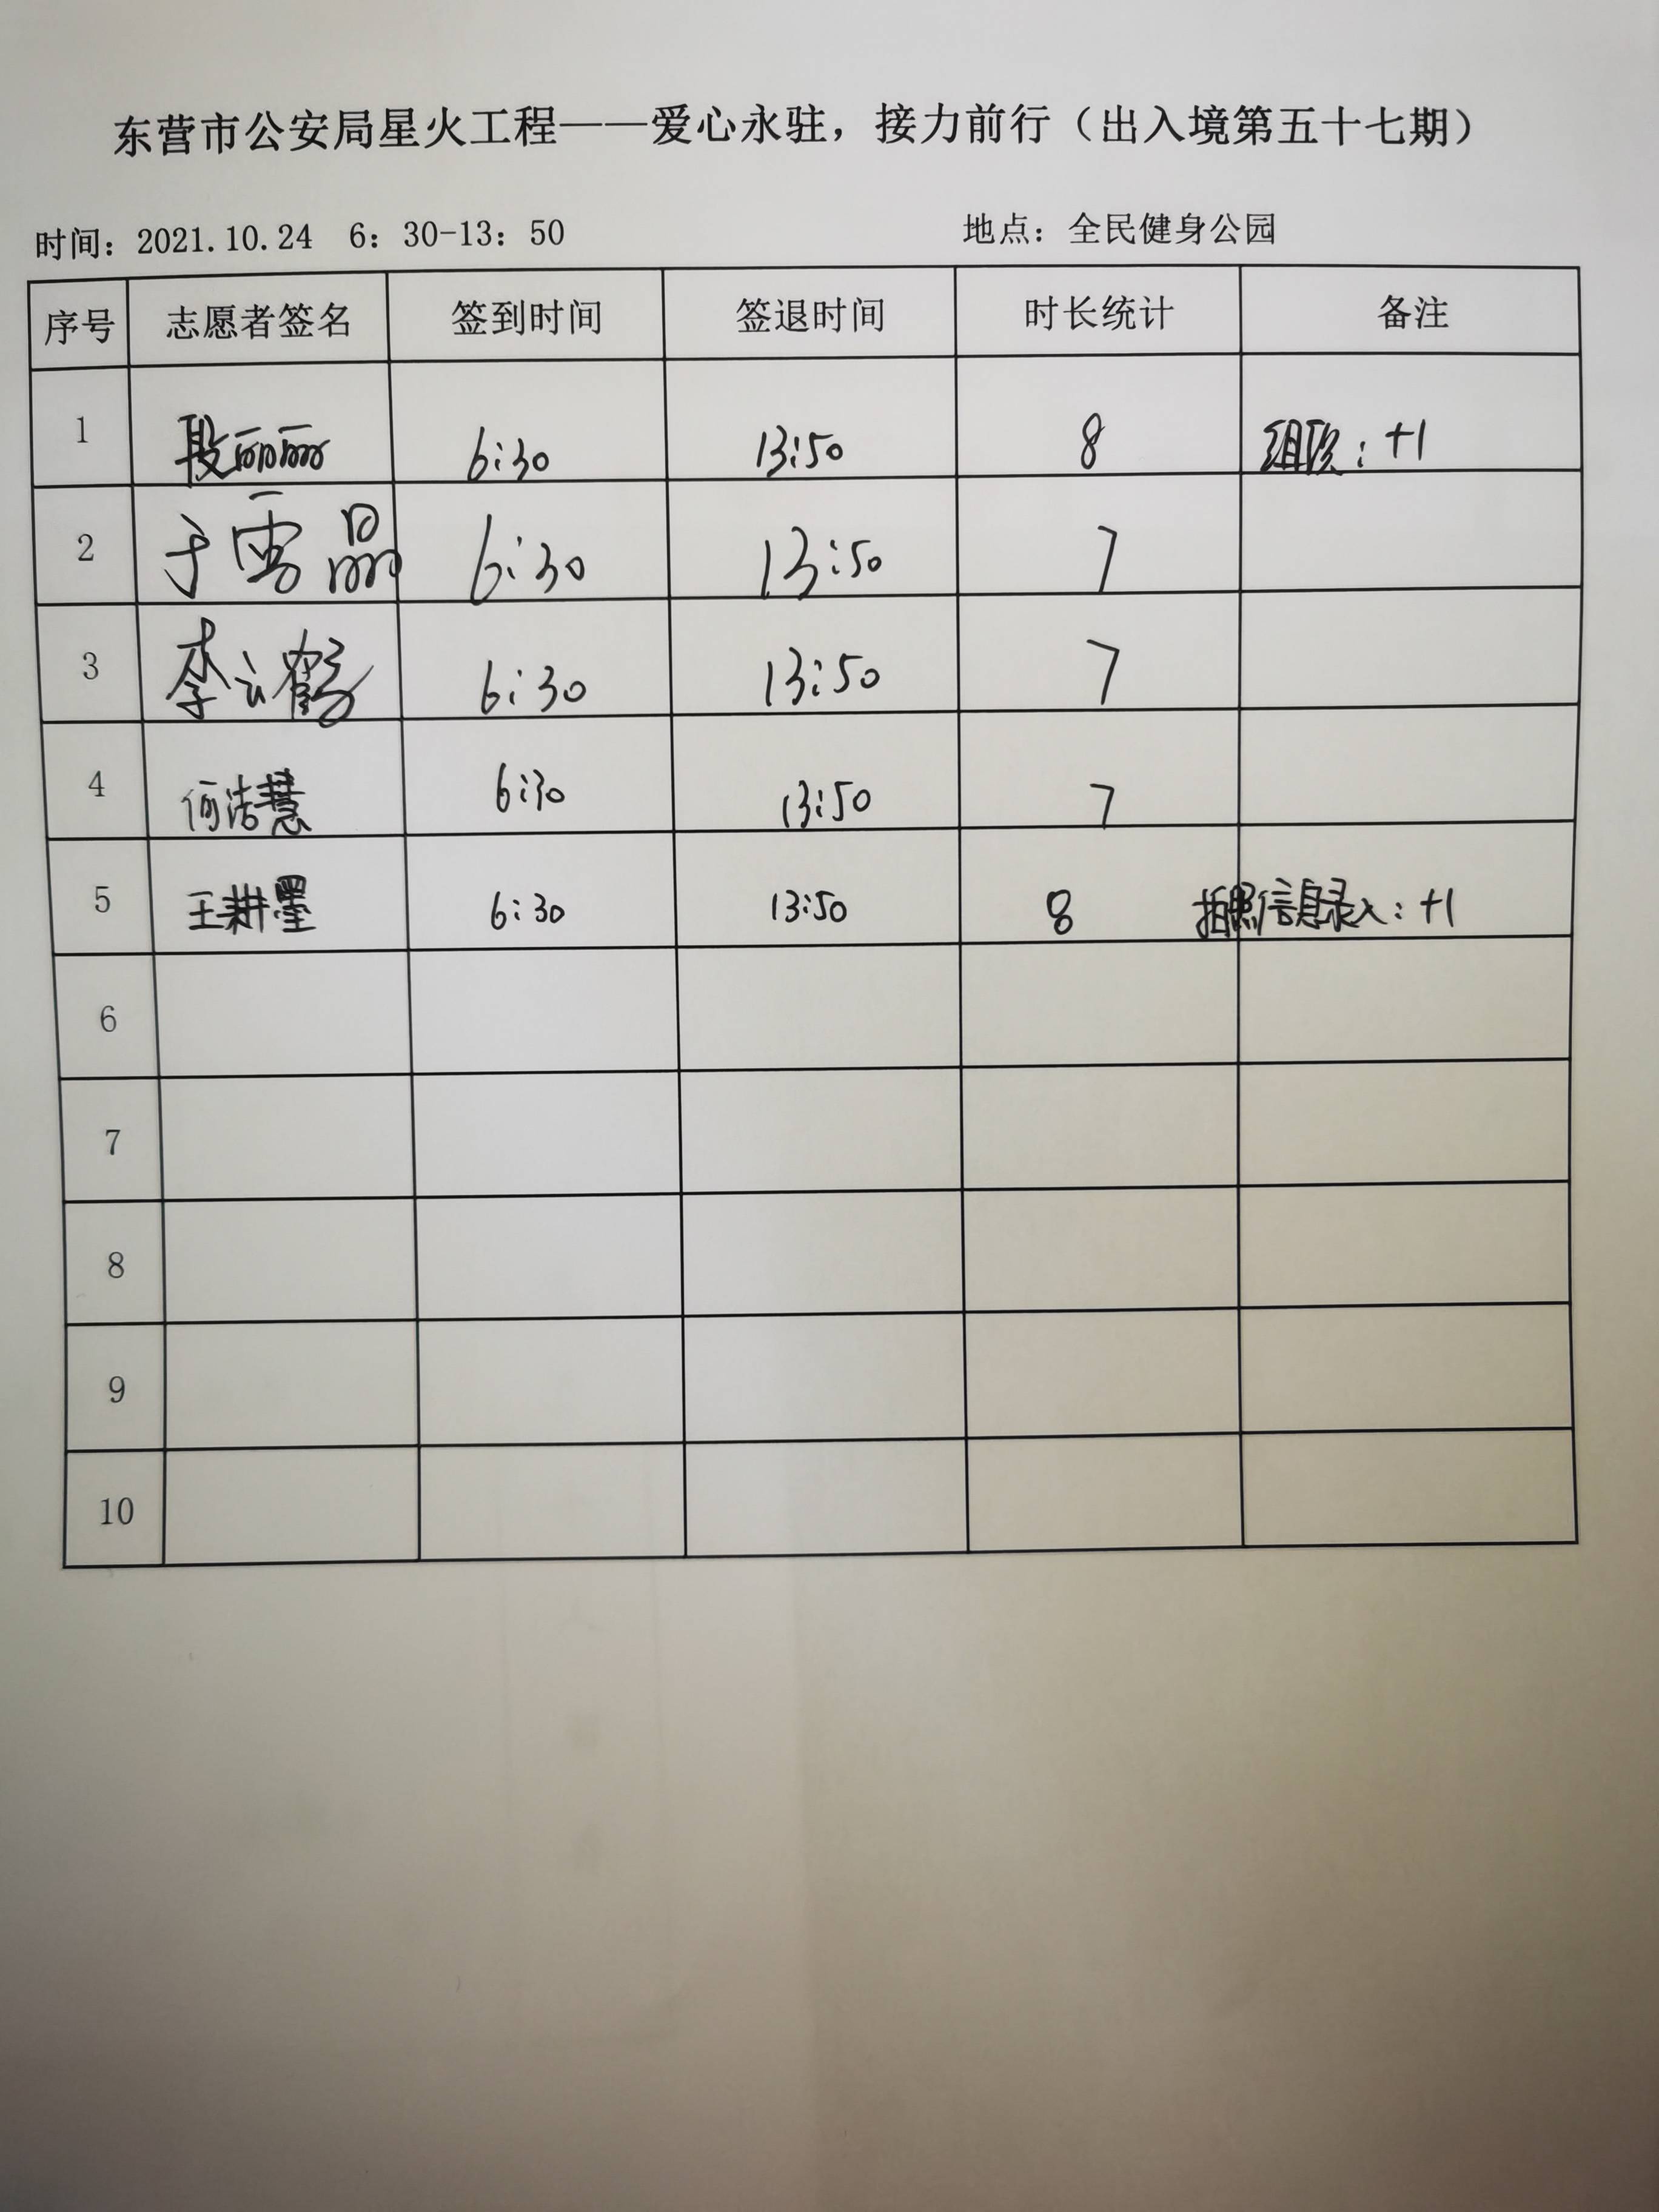 东营市公安局星火工程——爱心永驻，接力前行（出入境第五十七期）
时间：2021.10.24 6：30-13：50 地点：全民健身公园
序号 志愿者签名 签到时间 签退时间 时长统计 备注
1 段丽丽 6:30 13:50 8 组队：+1
2 于雪晶 6:30 13:50 7
3 李云鹤 6:30 13:50 7
4 何洁慧 6:30 13:50 7
5 王耕墨 6:30 13:50 8 拍照信息录入：+1
6
7
8
9
10